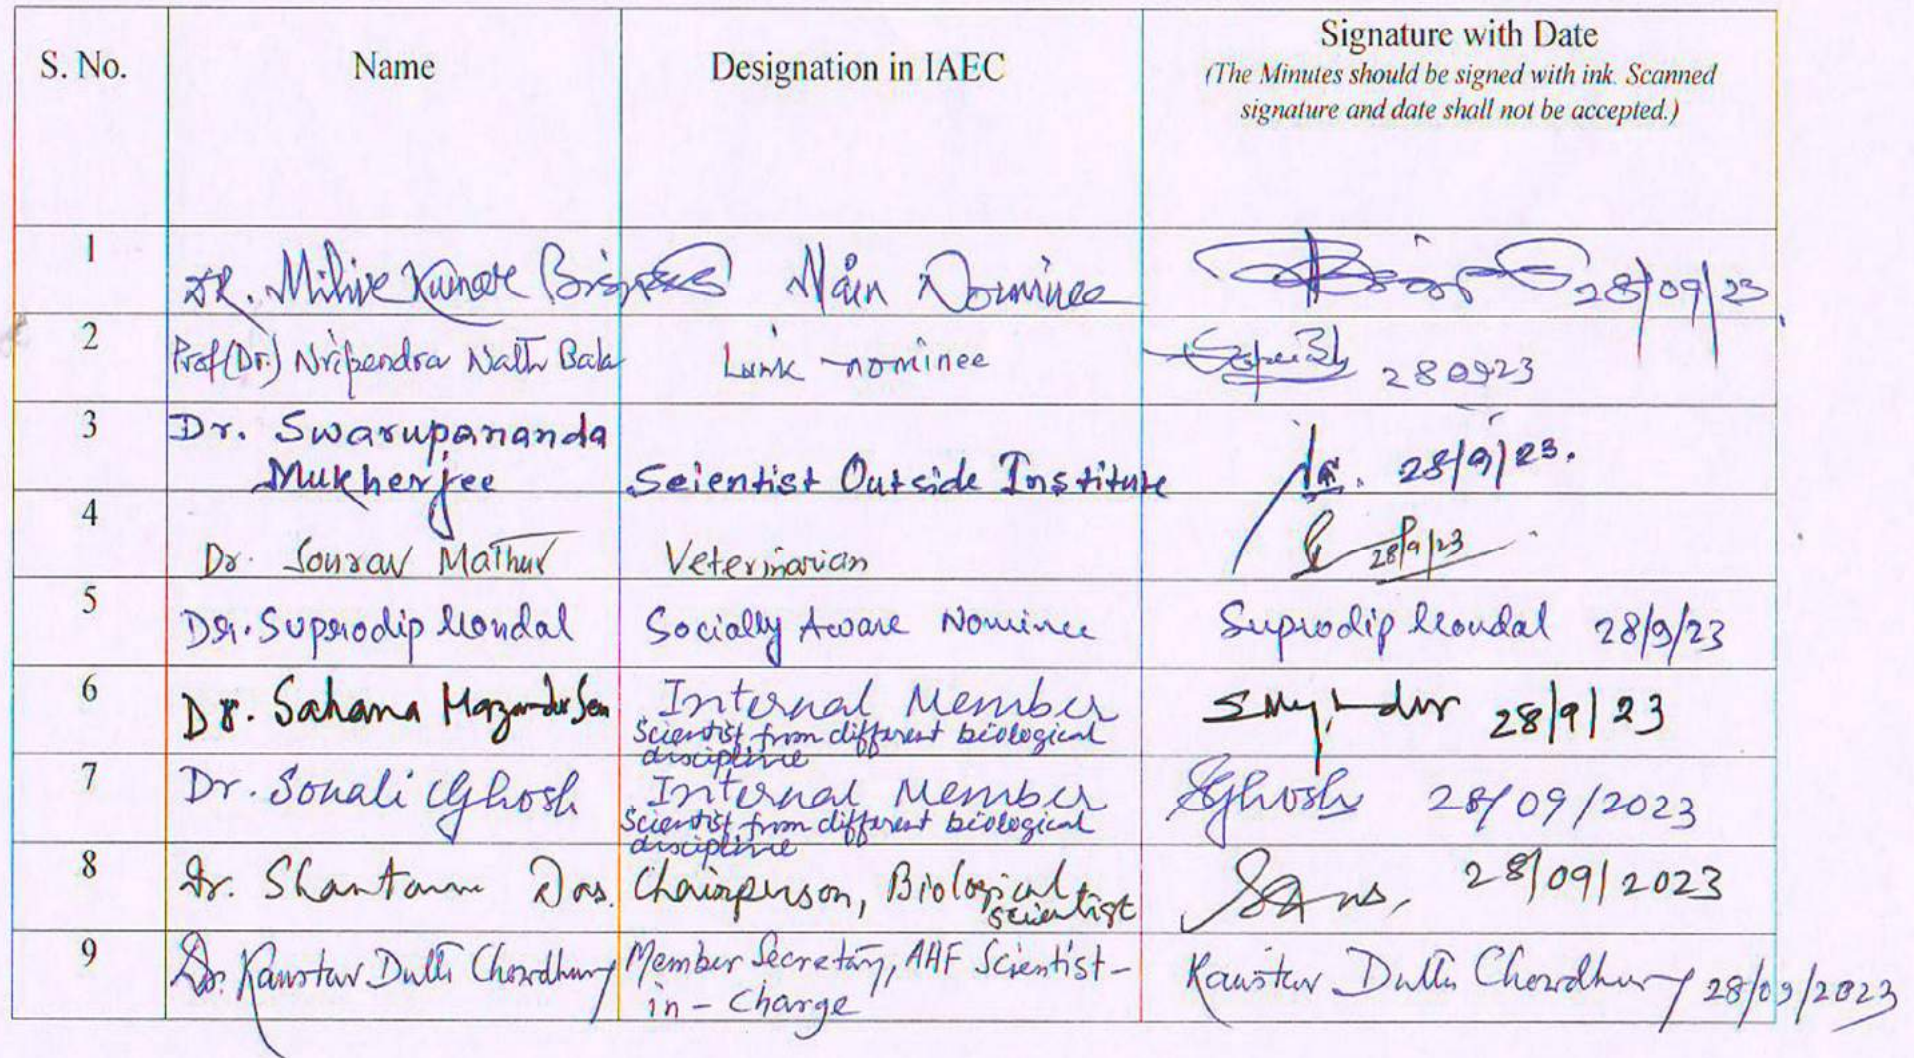 S. No. Name Designation in IAEC Signature with Date
(The Minutes should be signed with ink. Scanned
signature and date shall not be accepted.)
1 DR. Mihir Kumar Biswas Main Nominee 28/09/23
2 Prof(Dr.) Nripendra Nath Bala Link nominee 280923
3 Dr. Swarupananda
Mukherjee Scientist Outside Institute 28/9/23.
4 Dr. Sourav Mathur Veterinarian 28/9/23
5 Dr. Suprodip Mondal Socially Aware Nominee Suprodip Mondal 28/9/23
6 Dr. Sahana Mazumder Internal Member 28/9/23
Scientist from different biological
discipline
7 Dr. Sonali Ghosh Internal Member SGhosh 28/09/2023
Scientist from different biological
discipline
8 Dr. Shantanu Das. Chairperson, Biological 28/09/2023
scientist
9 Dr. Kaustav Dutta Chowdhury Member Secretary, AHF Scientist- Kaustav Dutta Chowdhury 28/09/2023
in-Charge